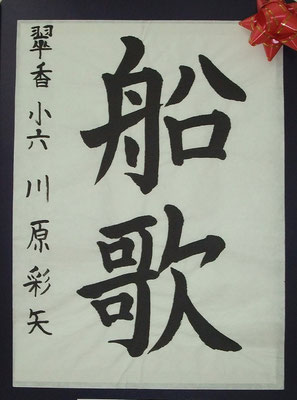 船歌
翠香 小六 川原彩矢